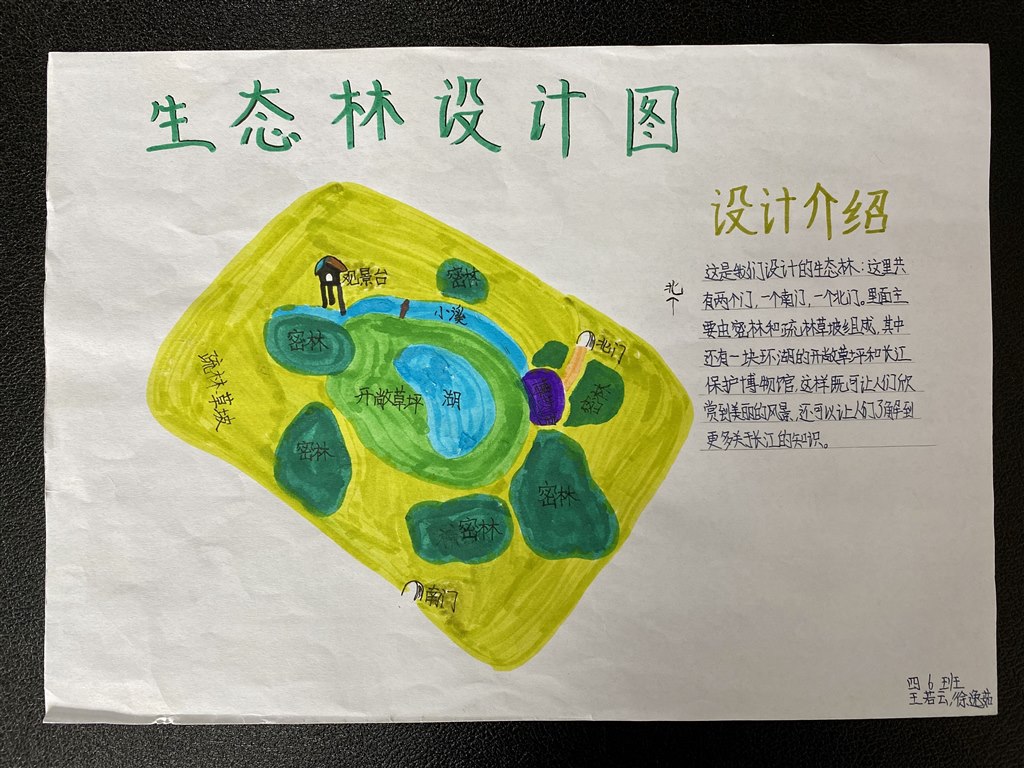 生态林设计图
设计介绍
这是我们设计的生态林：这里共
有两个门，一个南门，一个北门。里面主
要由密林和疏林草坡组成，其中
还有一块环湖的开敞草坪和长江
保护博物馆，这样既可让人们欣
赏到美丽的风景，还可以让人们了解到
更多关于长江的知识。
北
观景台
密林
小溪
北门
密林
疏林草坡
开敞草坪
湖
密林
密林
密林
密林
南门
四6班
王若云/徐逸茹